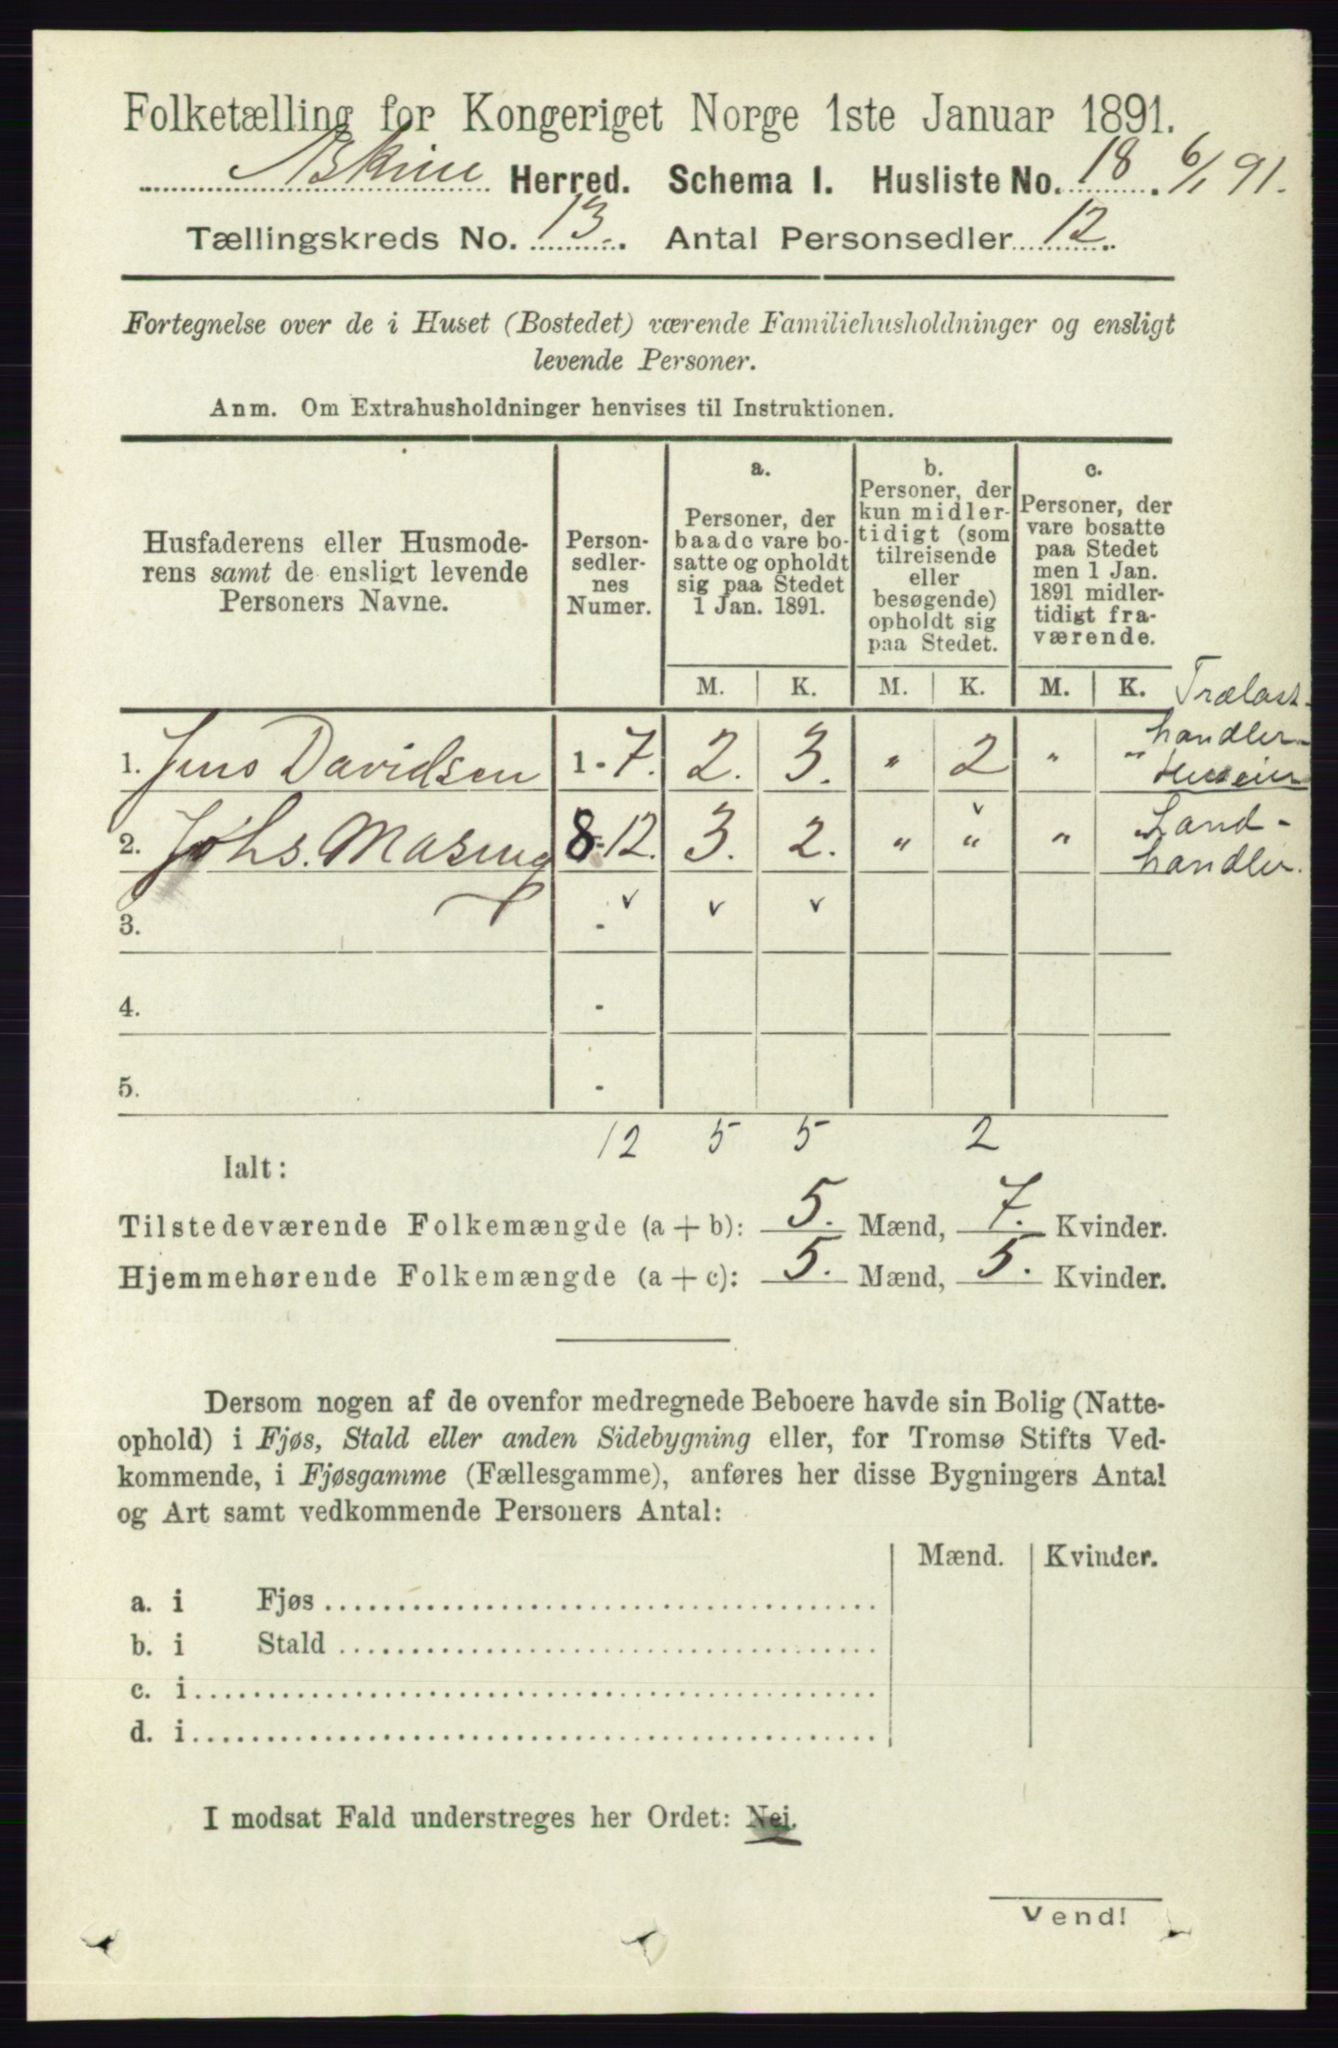 Folketælling for Kongeriget Norge 1ste Januar 1891.
Askim Herred. Schema I. Husliste No. 18. 6/1 91.
Tællingskreds No. 13. Antal Personsedler 12.
Fortegnelse over de i Huset (Bostedet) værende Familiehusholdninger og ensligt
levende Personer.
Anm. Om Extrahusholdninger henvises til Instruktionen.
Husfaderens eller Husmode-
rens samt de ensligt levende
Personers Navne.
Person-
sedler-
nes
Numer.
a.
Personer, der
baade vare bo-
satte og opholdt
sig paa Stedet
1 Jan. 1891.
b.
Personer, der
kun midler-
tidigt (som
tilreisende
eller
besøgende)
opholdt sig
paa Stedet.
c.
Personer, der
vare bosatte
paa Stedet
men 1 Jan.
1891 midler-
tidigt fra-
værende.
M. K. M. K. M. K.
Trælast-
handler-
Huseier
1. Jens Davidsen 1-7. 2. 3. " 2 " "
2. Johs. Masing 8-12. 3. 2. " " " "
Land-
handler.
3. -
4. -
5. -
12 5 5 2
Ialt:
Tilstedeværende Folkemængde (a + b): 5. Mænd, 7. Kvinder.
Hjemmehørende Folkemængde (a + c): 5. Mænd, 5. Kvinder.
Dersom nogen af de ovenfor medregnede Beboere havde sin Bolig (Natte-
ophold) i Fjøs, Stald eller anden Sidebygning eller, for Tromsø Stifts Ved-
kommende, i Fjøsgamme (Fællesgamme), anføres her disse Bygningers Antal
og Art samt vedkommende Personers Antal:
Mænd. Kvinder.
a. i Fjøs
b. i Stald
c. i
d. i
I modsat Fald understreges her Ordet: Nei.
Vend!